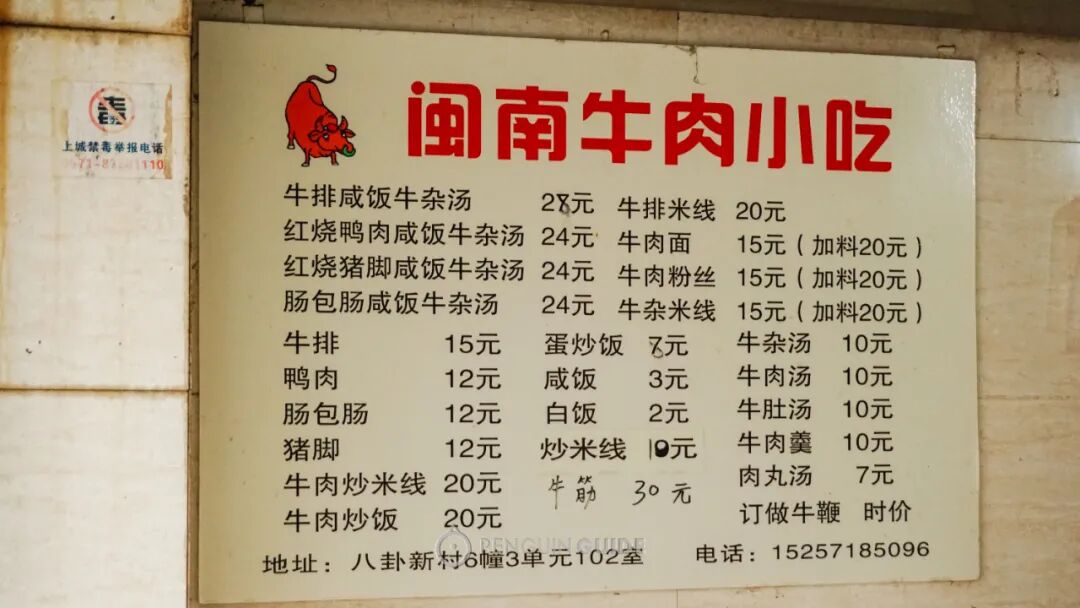 毒
上城禁毒举报电话
闽南牛肉小吃
牛排咸饭牛杂汤 28元 牛排米线 20元
红烧鸭肉咸饭牛杂汤 24元 牛肉面 15元（加料20元）
红烧猪脚咸饭牛杂汤 24元 牛肉粉丝 15元（加料20元）
肠包肠咸饭牛杂汤 24元 牛杂米线 15元（加料20元）
牛排 15元 蛋炒饭 元 牛杂汤 10元
鸭肉 12元 咸饭 3元 牛肉汤 10元
肠包肠 12元 白饭 2元 牛肚汤 10元
猪脚 12元 炒米线 10元 牛肉羹 10元
牛肉炒米线 20元 牛筋 30元 肉丸汤 7元
牛肉炒饭 20元 订做牛鞭 时价
PENGUIN GUIDE
地址：八卦新村6幢3单元102室 电话：15257185096